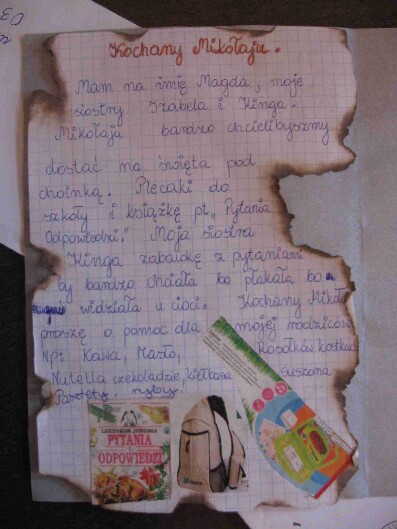 Kochany Mikołaju.
Mam na imię Magda, moje
siostry Izabela i Kinga.
Mikołaju bardzo chcielibyszmy
dostać na święta pod
choinką. Plecaki do
szkoły i książkę pt„ Pytania
Odpowiedzi." Moja siostra
Kinga zabawkę z pytaniami
by bardzo chciała bo płakała bo
widziała u cioci. Kochany Mikoła
proszę o pomoc dla mojej rodziców
Np: Kawa, Masło, Rosołków kostka
Nutella czekoladzie, kiełbasa suszona
Pasztety.
LEKSYKON JUNIORA
PYTANIA
ODPOWIEDZI